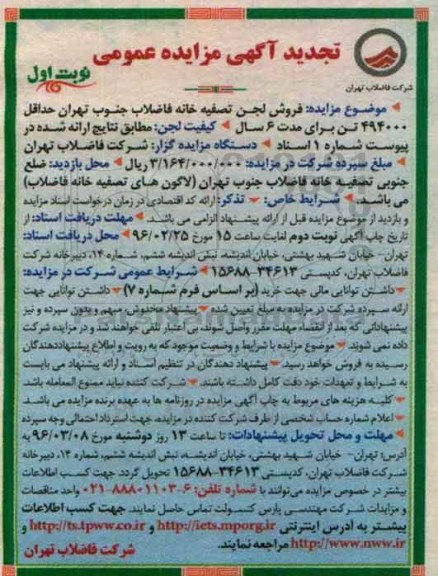 تجدید آگهی مزایده عمومی
نوبت اول
شرکت فاضلاب تهران
موضوع مزایده: فروش لجن تصفیه خانه فاضلاب جنوب تهران حداقل
۴۹۴۰۰۰ تن برای مدت ۶ سال کیفیت لجن: مطابق نتایج ارائه شده در
پیوست شماره ۱ اسناد دستگاه مزایده گزار: شرکت فاضلاب تهران
مبلغ سپرده شرکت در مزایده: ۳/۱۶۴/۰۰۰/۰۰۰ ریال محل بازدید: ضلع
جنوبی تصفیه خانه فاضلاب جنوب تهران (لاگون های تصفیه خانه فاضلاب)
می باشد. شرایط خاص: تذکر: ارائه کد اقتصادی در زمان درخواست اسناد مزایده
و بازدید از موضوع مزایده قبل از ارائه پیشنهاد الزامی می باشد. مهلت دریافت اسناد: از
تاریخ چاپ آگهی نوبت دوم لغایت ساعت ۱۵ مورخ ۹۶/۰۲/۲۵ محل دریافت اسناد:
تهران- خیابان شهید بهشتی، خیابان اندیشه، نبش اندیشه ششم، شماره ۱۴، دبیرخانه شرکت
فاضلاب تهران، کدپستی ۳۴۶۱۳-۱۵۶۸۸ شرایط عمومی شرکت در مزایده:
داشتن توانایی مالی جهت خرید (بر اساس فرم شماره ۷) داشتن توانایی جهت
ارائه سپرده شرکت در مزایده به مبلغ تعیین شده پیشنهاد مخدوش، مبهم و بدون سپرده و نیز
پیشنهاداتی که بعد از انقضاء مهلت مقرر واصل شوند، بی اعتبار تلقی خواهند شد و در مزایده شرکت
داده نمی شوند. موضوع مزایده با شرایط و وضعیت موجود که به رویت و اطلاع پیشنهاددهندگان
رسیده به فروش خواهد رسید. پیشنهاد دهندگان در تنظیم اسناد و ارائه پیشنهاد می بایست
به شرایط و تعهدات خود دقت کامل داشته باشند. شرکت کننده نباید ممنوع المعامله باشد.
کلیه هزینه های مربوط به چاپ آگهی مزایده در روزنامه ها به عهده برنده مزایده می باشد.
اعلام شماره حساب شخصی از طرف شرکت کننده در مزایده، جهت استرداد احتمالی وجه سپرده
مهلت و محل تحویل پیشنهادات: تا ساعت ۱۳ روز دوشنبه مورخ ۹۶/۰۳/۰۸ به
آدرس: تهران- خیابان شهید بهشتی، خیابان اندیشه، نبش اندیشه ششم، شماره ۱۴، دبیرخانه
شرکت فاضلاب تهران، کدپستی ۳۴۶۱۳-۱۵۶۸۸ تحویل گردد. جهت کسب اطلاعات
بیشتر در خصوص مزایده می توانند با شماره تلفن: ۶-۸۸۸۰۱۱۰۳-۰۲۱ واحد مناقصات
و مزایدات شرکت مهندسی پارس کنسولت تماس حاصل نمایند. جهت کسب اطلاعات
بیشتر به آدرس اینترنتی http://iets.mporg.ir و http://ts.tpww.co.ir و
http://www.nww.ir مراجعه نمایند.
شرکت فاضلاب تهران